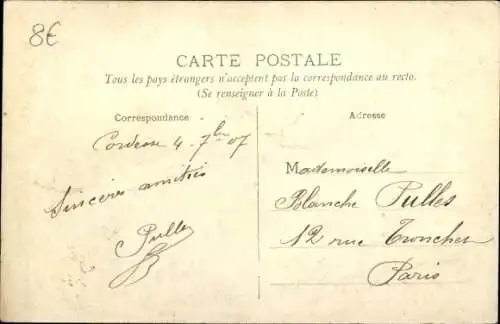 8€
CARTE POSTALE
Tous les pays étrangers n'acceptent pas la correspondance au recto.
(Se renseigner à la Poste)
Correspondance
Adresse
4 - 7bre 07
Sincères amitiés
Pulles
Mademoiselle
Blanche Pulles
12 rue Tronchet
Paris